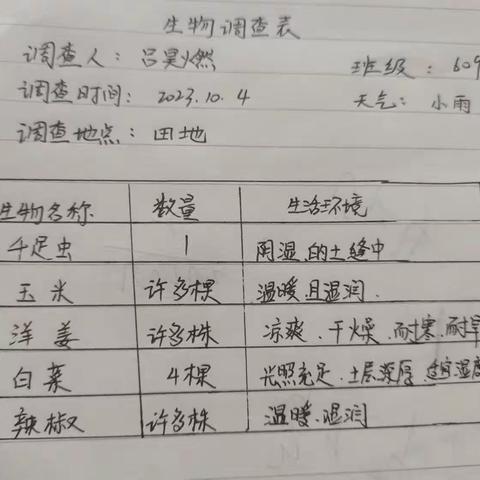 生物调查表
调查人：吕昊燃 班级：609
调查时间：2023.10.4 天气：小雨
调查地点：田地
生物名称 数量 生活环境
千足虫 1 阴湿的土缝中
玉米 许多棵 温暖且湿润.
洋姜 许多株 凉爽、干燥、耐寒、耐旱
白菜 4棵 光照充足、土层深厚、适宜湿度
辣椒 许多株 温暖、湿润